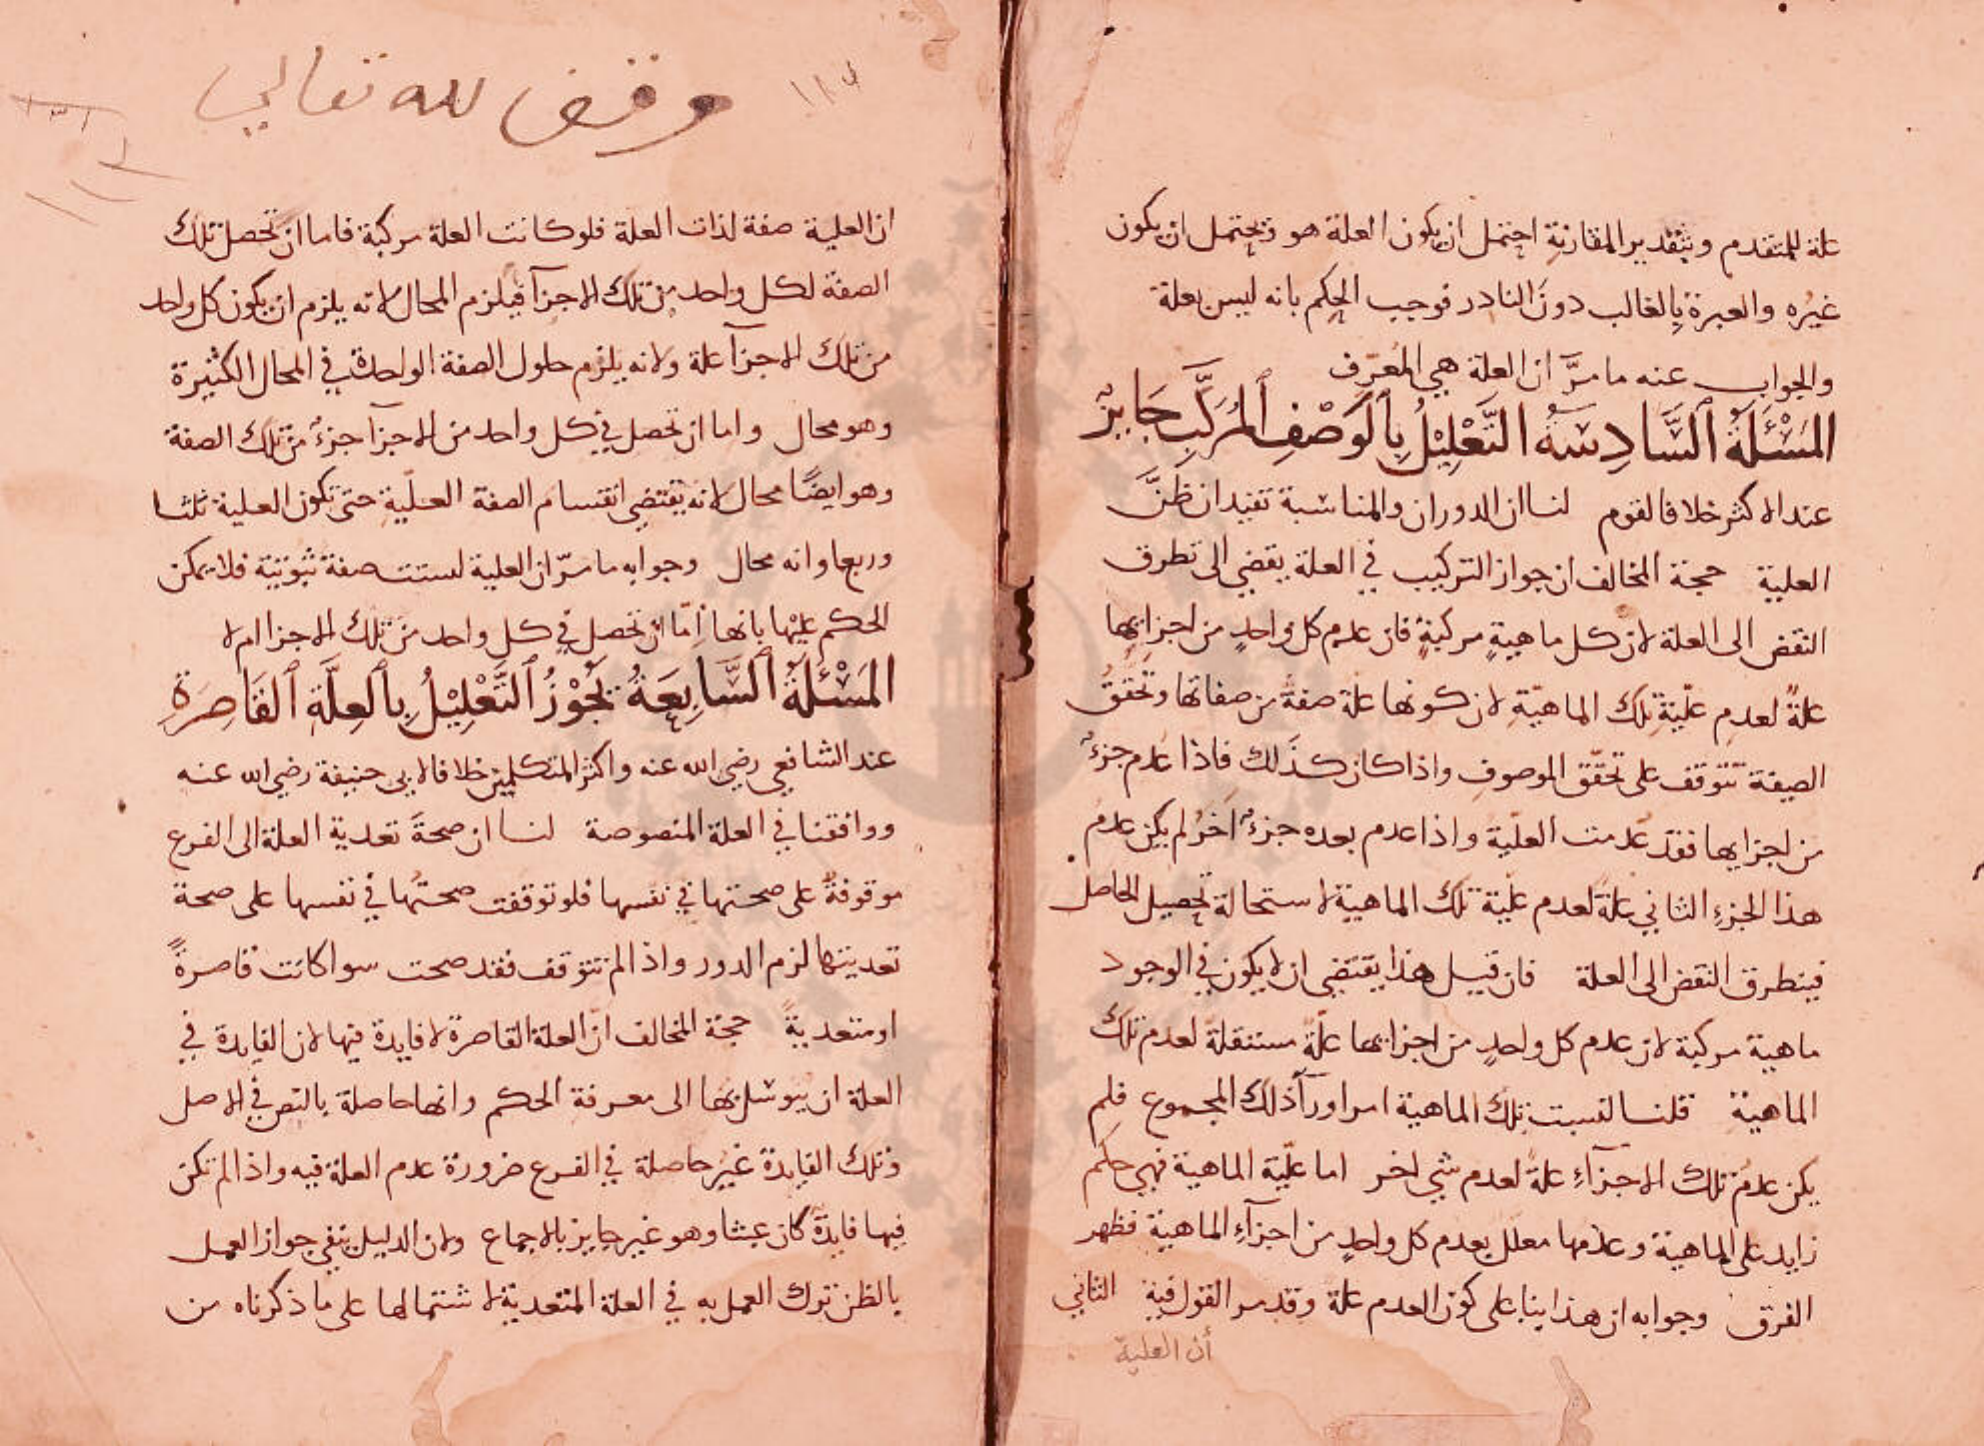 علة للمتقدم وبتقدير المقارنة احتمل ان يكون العلة هو وتحتمل ان يكون
غيره والعبرة بالغالب دون النادر فوجب الحكم بانه ليس بعلة
والجواب عنه ما مرَّ ان العلة هي المُعرِّف
المَسْئَلَةُ ٱلسَّادِسَةُ التَّعْلِيْلُ بِٱلوَصْفِ ٱلمُركَّبِ جَايِزٌ
عند الاكثر خلافا لقوم لنا ان الدوران والمناسبة تفيدان ظنَّ
العلية حجة المخالف ان جواز التركيب في العلة يفضي الى تطرق
النقض الى العلة لان كل ماهيةٍ مركبةٍ فان عدم كل واحدٍ من اجزايها
علةٌ لعدمِ علّيةِ تلك الماهيّةِ لان كونها علة صفةٌ من صفاتها وتحققُ
الصفة تتوقف على تحقّق الموصوف واذا كان كذلك فاذا عُدم جزءٌ
من اجزايها فقد عُدمت العلّية واذا عدم بعده جزءٌ اخرُ لم يكن عدمُ
هذا الجزءِ الثاني علةً لعدم علّية تلك الماهية لاستحالة تحصيل الحاصل
فيتطرق النقض الى العلة فان قيل هذا يقتضي ان لا يكون في الوجود
ماهية مركبة لان عدم كل واحدٍ من اجزايها علّةٌ مستقلةٌ لعدم تلك
الماهية قلنا ليست تلك الماهية امرا ورآ ذلك المجموع فلم
يكن عدمُ تلك الاجزآءِ علةً لعدم شي اخر اما علّية الماهية فهي حكم
زايد على الماهية وعدمها معلل بعدم كل واحدٍ من اجزآءِ الماهية فظهر
الفرق وجوابه ان هذا بنا على كون العدم علة وقد مر القول فيه الثاني
أن العلية
وقف لله تعالى
ان العلية صفة لذات العلة فلو كانت العلة مركبة فاما ان تحصل تلك
الصفة لكل واحد من تلك الاجزآ فيلزم المحال لانه يلزم ان يكون كل واحد
من تلك الاجزآ علة ولانه يلزم حلول الصفة الواحدة في المحال الكثيرة
وهو محال واما ان تحصل في كل واحد من الاجزآ جزءٌ من تلك الصفة
وهو ايضًا محال لانه يقتضي انقسام الصفة العلّية حتى تكون العلية ثلثا
وربعا وانه محال وجوابه ما مرّ ان العلية ليست صفة ثبوتية فلا يمكن
الحكم عليها بانها إمّا ان تحصل في كل واحد من تلك الاجزا ام لا
المَسْئَلَةُ ٱلسَّابِعَةُ يَجُوْزُ ٱلتَّعْلِيْلُ بِٱلعِلَّةِ ٱلقَاصِرَةِ
عند الشافعي رضي الله عنه واكثر المتكلمين خلافا لابي حنيفة رضي الله عنه
ووافقنا في العلة المنصوصة لنا ان صحةَ تعدية العلة الى الفرع
موقوفةٌ على صحتها في نفسها فلو توقفت صحتُها في نفسها على صحة
تعديتها لزم الدور واذا لم تتوقف فقد صحت سوا كانت قاصرةً
او متعديةً حجة المخالف انّ العلة القاصرة لا فايدة فيها لان الفايدة في
العلة ان يتوسل بها الى معرفة الحكم وانها حاصلة بالنص في الاصل
وتلك الفايدة غير حاصلة في الفرع ضرورة عدم العلة فيه واذا لم تكن
فيها فايدة كان عبثا وهو غير جايز بالاجماع ولان الدليل ينفي جواز العمل
بالظن ترك العمل به في العلة المتعدية لاشتمالها على ما ذكرناه من